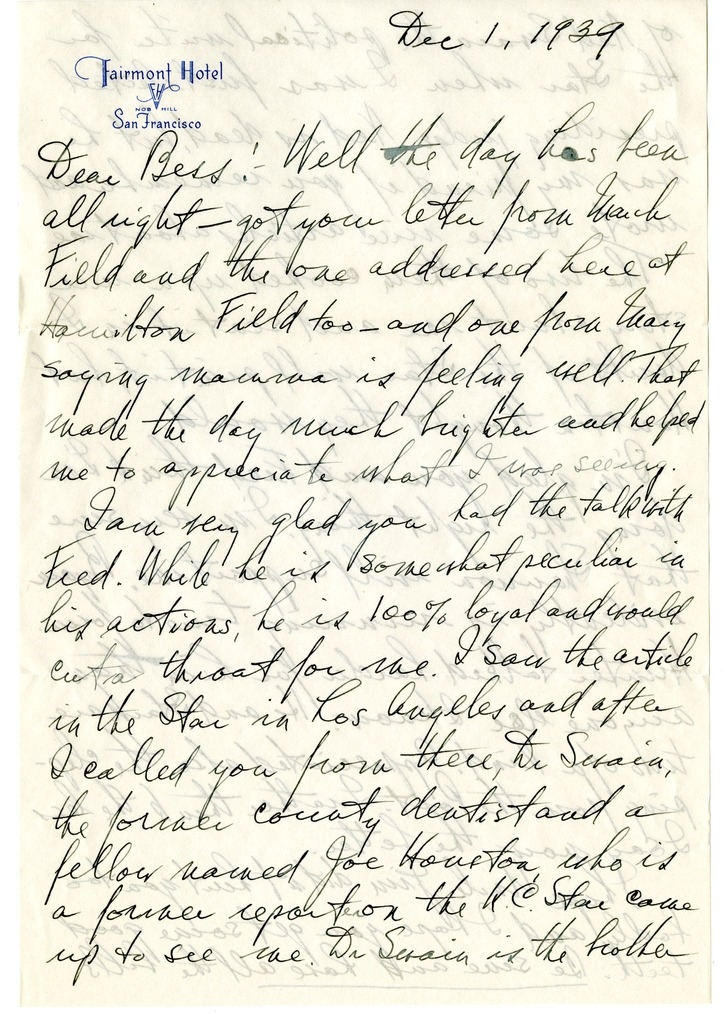 Dec 1, 1939
Fairmont Hotel
FH
NOB HILL
San Francisco
Dear Bess:- Well the day has been
all right - got your letter from March
Field and the one addressed here at
Hamilton Field too - and one from Mary
saying mamma is feeling well. That
made the day much brighter and helped
me to appreciate what I was seeing.
I am very glad you had the talk with
Fred. While he is somewhat peculiar in
his actions, he is 100% loyal and would
cut a throat for me. I saw the article
in the Star in Los Angeles and after
I called you from there, Dr Swain,
the former county dentist and a
fellow named Joe Houston, who is
a former report on the K.C. Star came
up to see me. Dr Swain is the brother